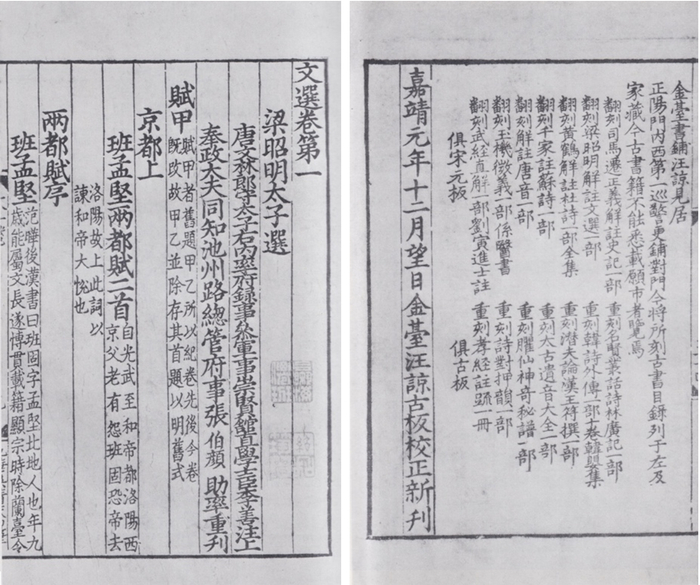 文選卷第一
梁昭明太子選
唐文林郎守太子右內率府錄事參軍事崇賢館直學士臣李善注上
奉政大夫同知池州路總管府事張伯顏助率重刊
賦甲 賦甲者舊題甲乙所以紀卷先後今卷
既改故甲乙並除存其首題以明舊式
京都上
班孟堅兩都賦二首 自光武至和帝都洛陽西
京父老有怨班固恐帝去
洛陽故上此詞以
諫和帝大悅也
兩都賦序
班孟堅 范曄後漢書曰班固字孟堅北地人也年九
歲能屬文長遂博貫載籍顯宗時除蘭臺令
金臺書鋪汪諒見居
正陽門內西第一巡警更鋪對門今將所刻古書目錄列于左及
家藏今古書籍不能悉載願市者覽焉
翻刻司馬遷正義解註史記一部 重刻名賢叢話詩林廣記一部
翻刻梁昭明解註文選一部 重刻韓詩外傳一部十卷韓嬰集
翻刻黃鶴解註杜詩一部全集 重刻潛夫論漢王符撰一部
翻刻千家註蘇詩一部 重刻太古遺音大全一部
翻刻解註唐音一部 重刻臞仙神奇秘譜一部
翻刻玉機微義一部係醫書 重刻詩對押韻一部
翻刻武經直解一部劉寅進士註 重刻孝經註疏一冊
俱宋元板 俱古板
嘉靖元年十二月望日金臺汪諒古板校正新刊